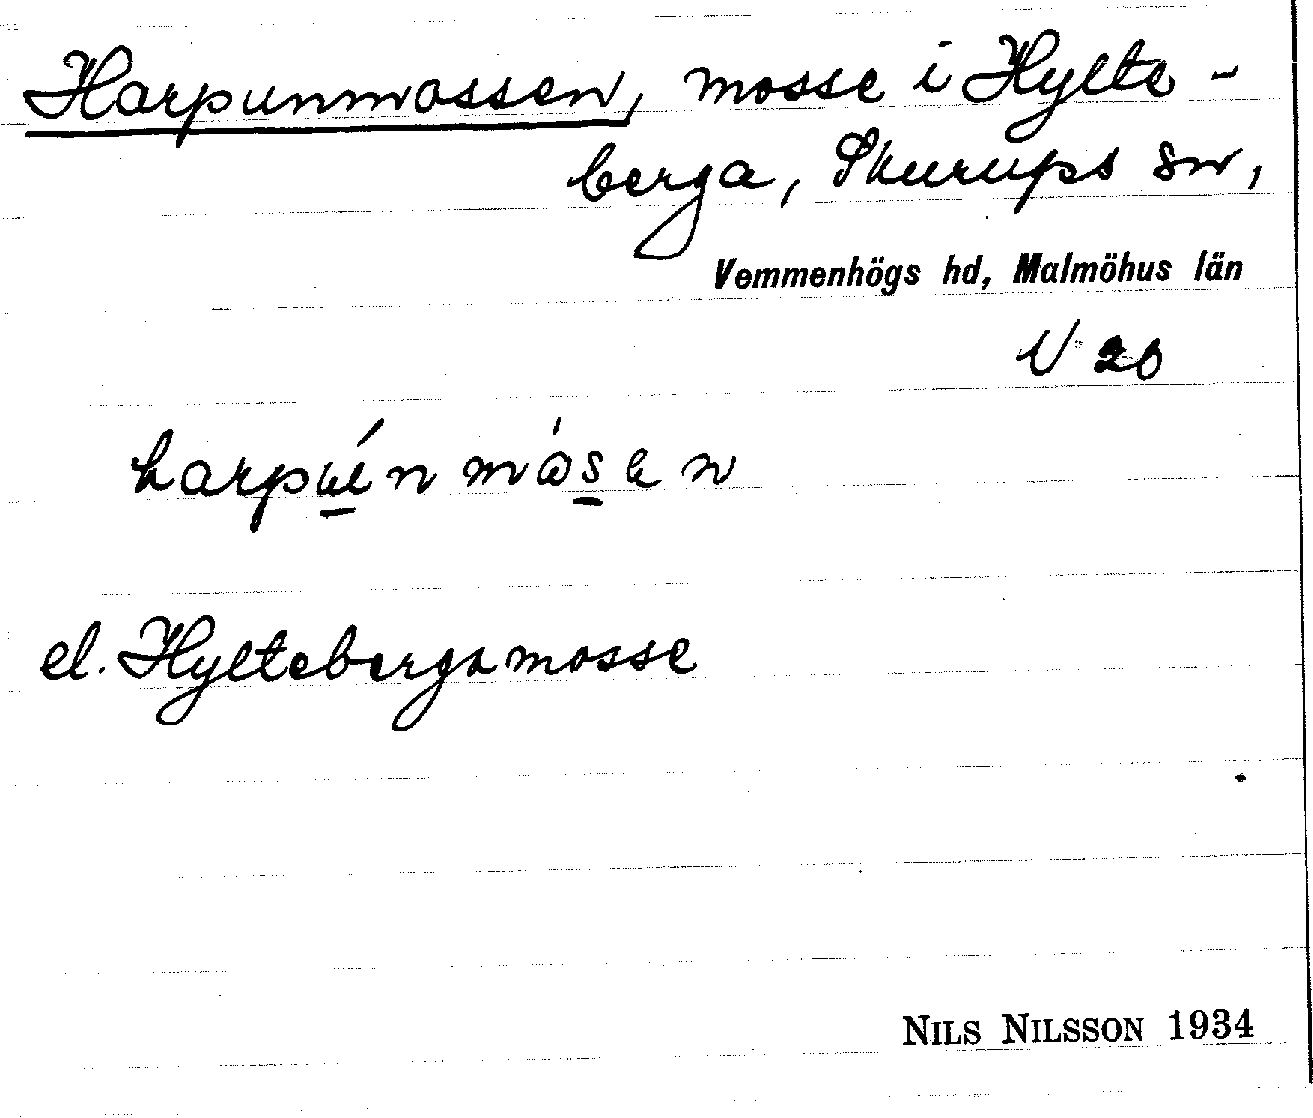 Harpunmossen, mosse i Hylte-
berga, Skurups sn,
Vemmenhögs hd, Malmöhus län
V 20
harpún mòsen
el. Hyltebergamosse
NILS NILSSON 1934